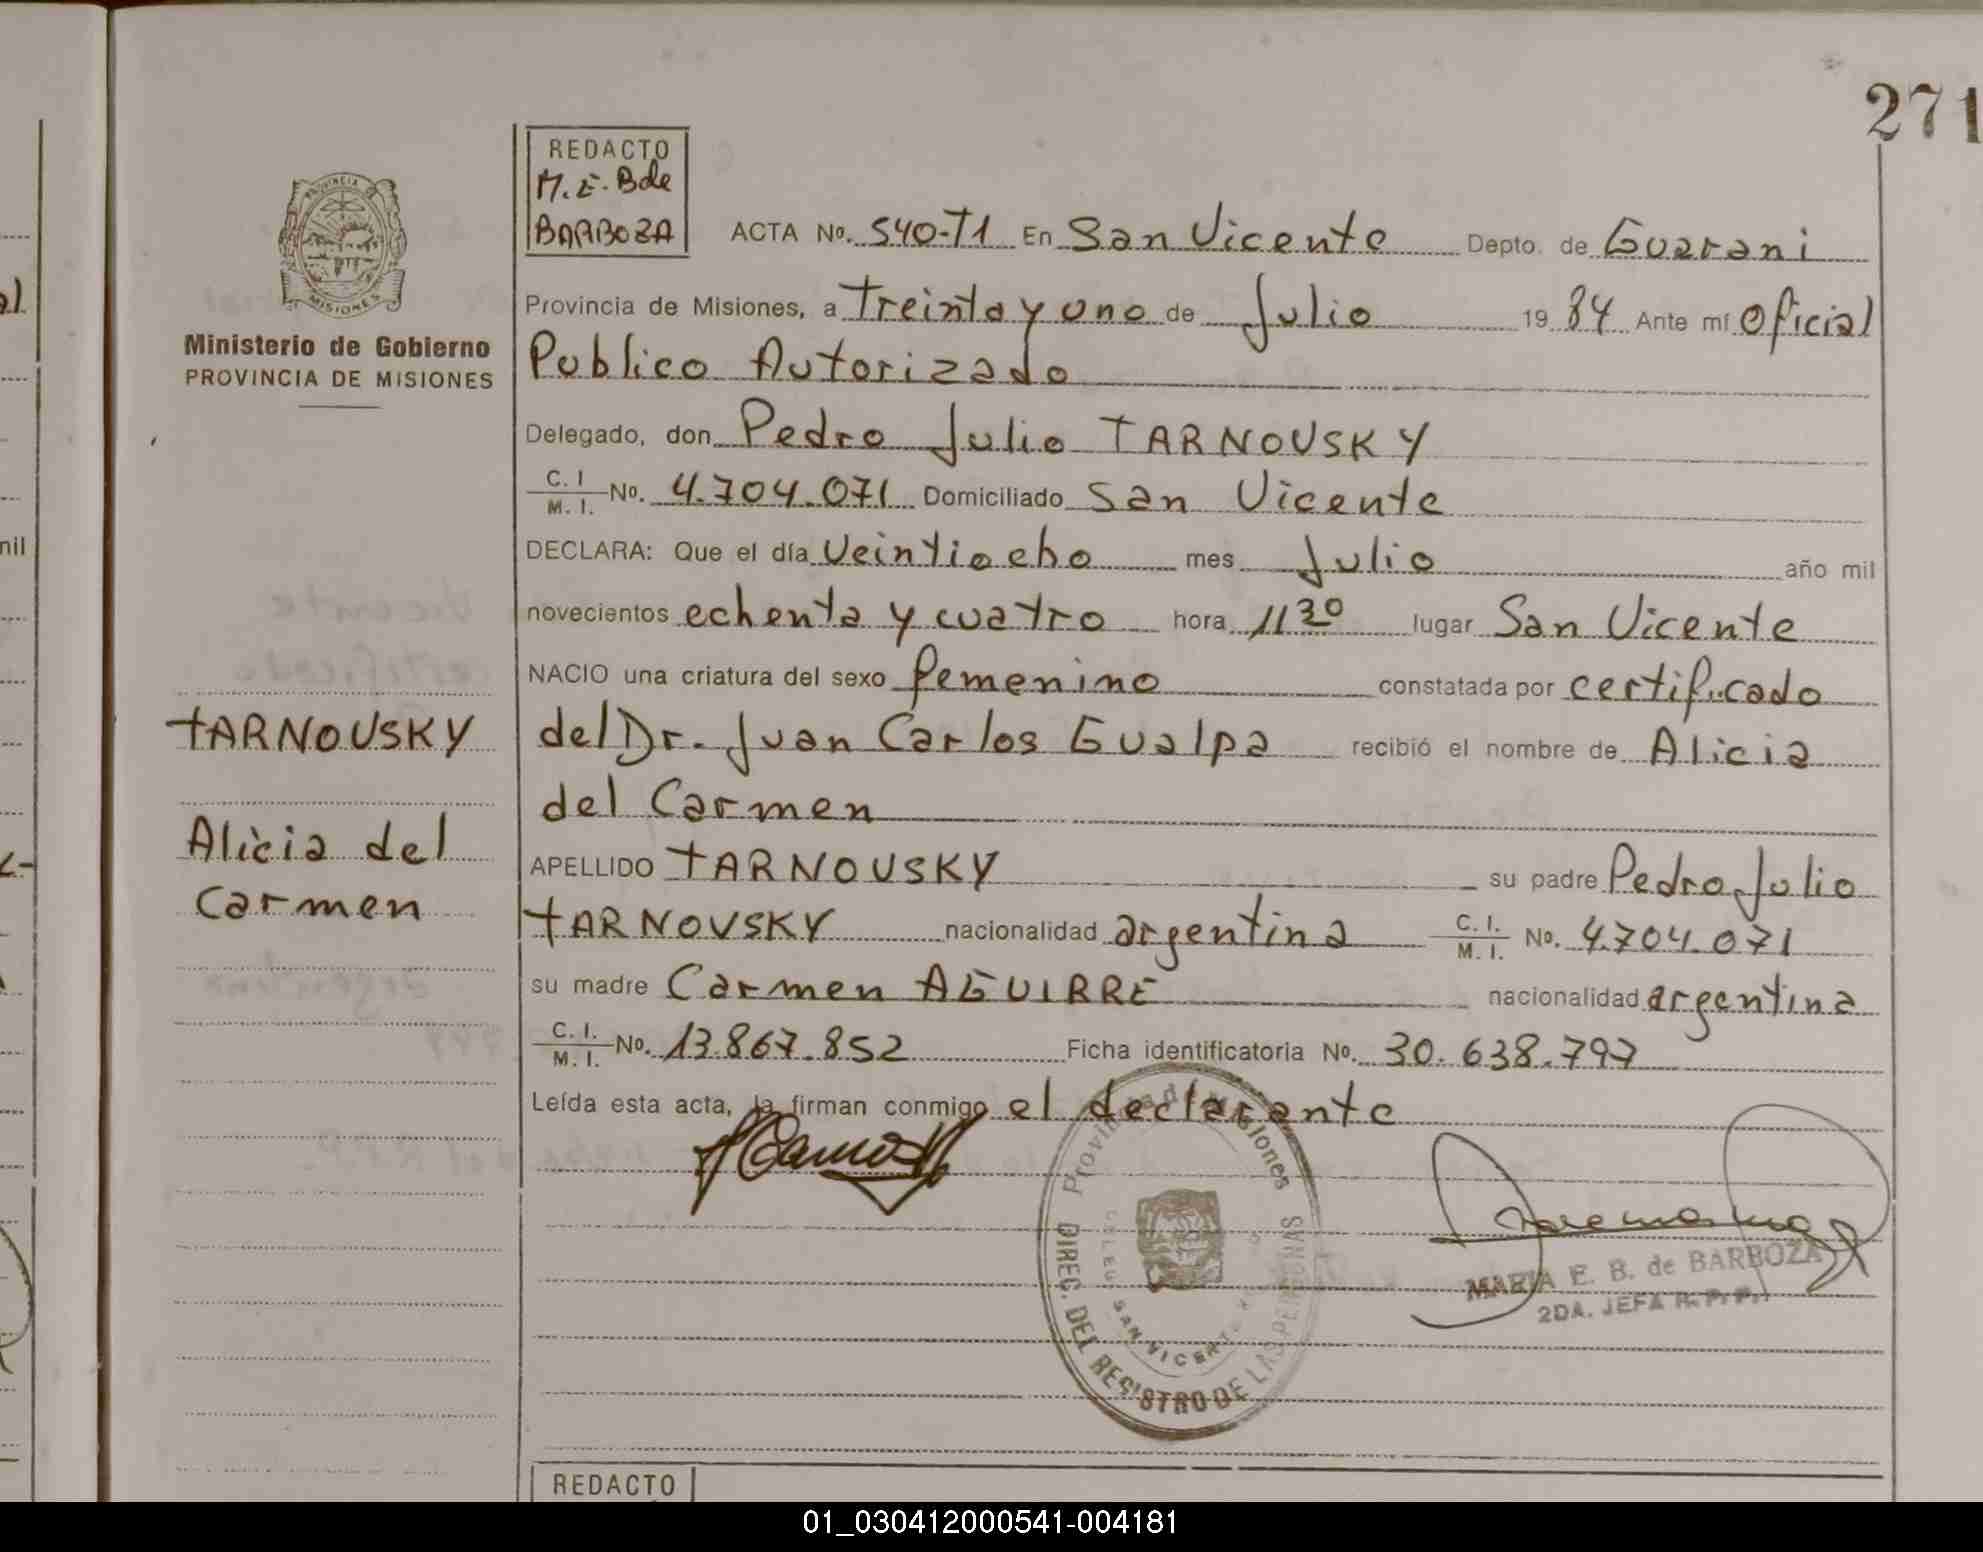 271
REDACTO
M.E. B de
BARBOZA
PROVINCIA DE
MISIONES
Ministerio de Gobierno
PROVINCIA DE MISIONES
ACTA No. 540-T1 En San Vicente Depto. de Guarani
Provincia de Misiones, a treinta y uno de Julio 19 84 Ante mí Oficial
Publico Autorizado
Delegado, don Pedro Julio TARNOUSKY
C. I M. I. No. 4.704.071 Domiciliado San Vicente
DECLARA: Que el día Veintiocho mes Julio año mil
novecientos echenta y cuatro hora 11 30 lugar San Vicente
NACIO una criatura del sexo femenino constatada por certificado
del Dr. Juan Carlos Gualpa recibió el nombre de Alicia
del Carmen
APELLIDO TARNOUSKY su padre Pedro Julio
TARNOVSKY nacionalidad argentina C. I. M. I. No. 4.704.071
su madre Carmen AGUIRRE nacionalidad argentina
C. I. M. I. No. 13.867.852 Ficha identificatoria No. 30.638.797
Leída esta acta, la firman conmigo el declarante
TARNOUSKY
Alicia del
Carmen
Provincia de Misiones
DIREC. DEL REGISTRO DE LAS PERSONAS
SAN VICENTE
MARIA E. B. de BARBOZA
2DA. JEFA R. P. P.
REDACTO
al
nil
01_030412000541-004181